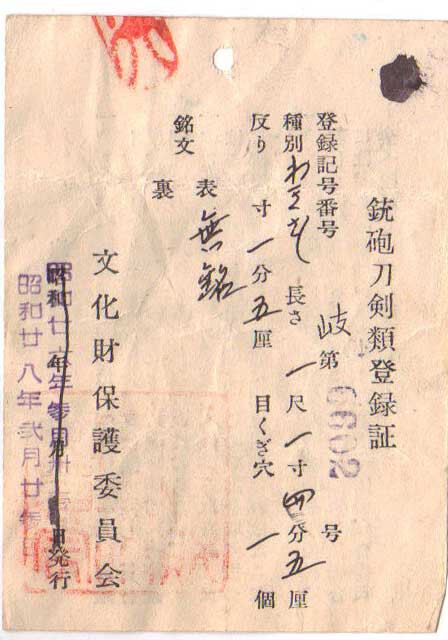 銃砲刀剣類登録証
登録記号番号 岐第6602号
種別 わきざし 長さ 一尺一寸四分五厘
反り 寸一分五厘 目くぎ穴 一個
銘文 表 無銘
裏
文化財保護委員会
昭和 年 月 日発行
昭和廿八年弐月廿